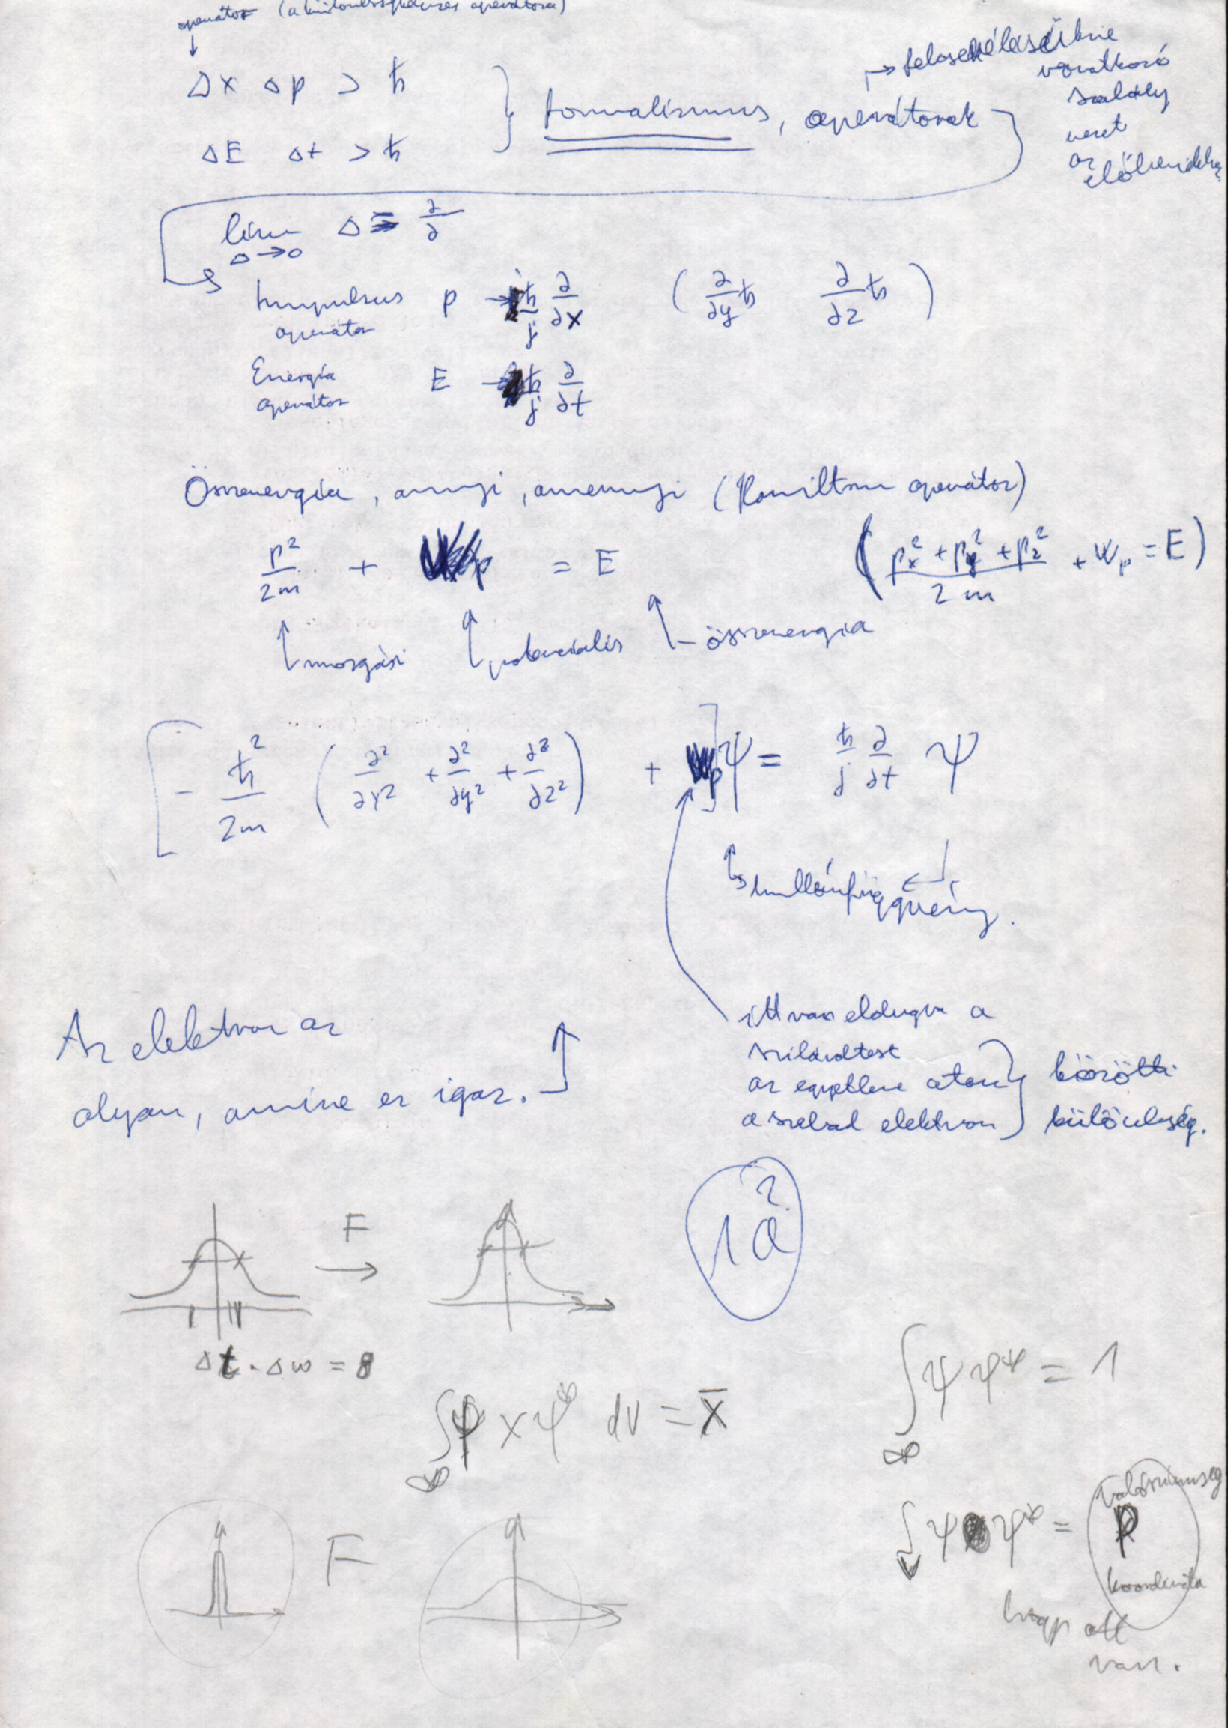 operátor (a
↓
Δx Δp > ħ
ΔE Δt > ħ
} formalizmus, operátorok
→ felcserélésükre
vonatkozó
szabály
vezet
az
lim Δ ≡ ∂/∂
Δ→0
Impulzus operátor p → ħ/j ∂/∂x ( ∂/∂y ħ ∂/∂z ħ )
Energia operátor E → ħ/j ∂/∂t
Összenergia, annyi, amennyi (Hamilton operátor)
p²/2m + Wp = E
( (px² + py² + pz²)/2m + Wp = E )
↑ mozgási ↑ potenciális ↑ összenergia
[ - ħ²/2m ( ∂²/∂x² + ∂²/∂y² + ∂²/∂z² ) + Wp ] ψ = ħ/j ∂/∂t ψ
hullámfüggvény.
itt van eldugva a
szilárdtest
az egyetlen atom
a szabad elektron
} közötti
különbség.
Az elektron az
olyan, amire ez igaz.
1a
F
→
Δt · Δw = 8
∫∞ ψ x ψ* dV = x̄
∫∞ ψ ψ* = 1
∫v ψ ψ* = p
valószínűség
koordináta
hogy ott
van.
F